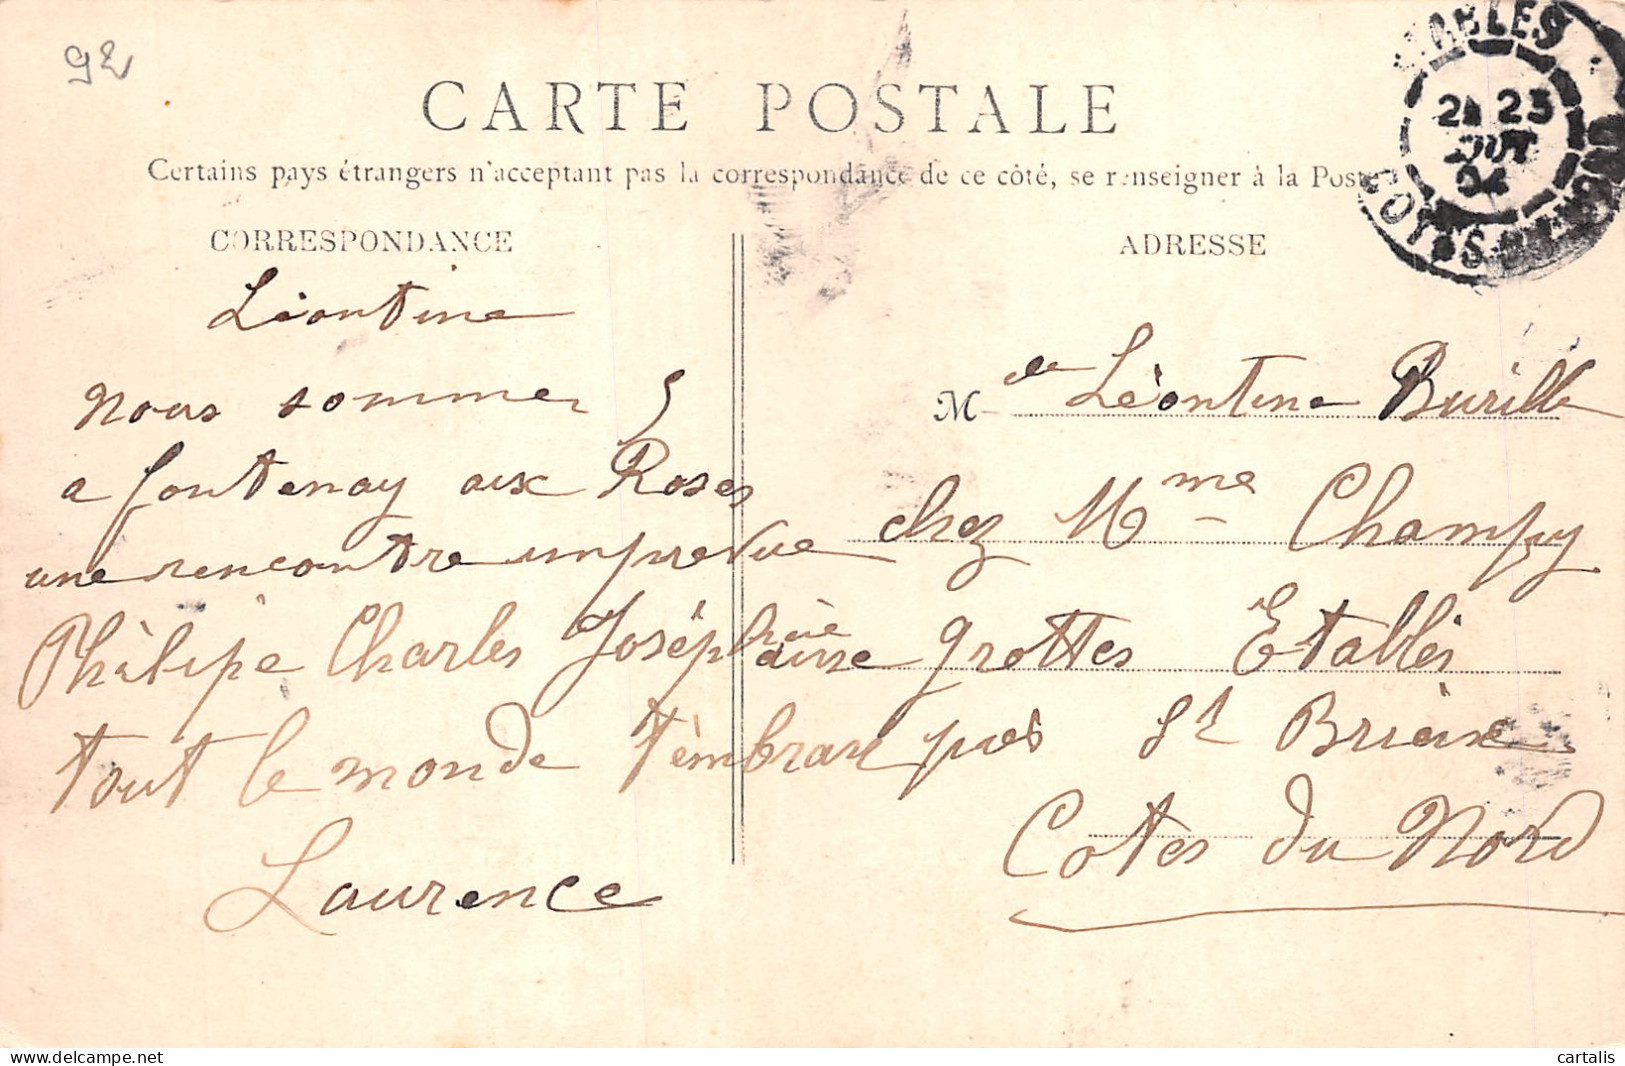 92
CARTE POSTALE
Certains pays étrangers n'acceptant pas la correspondance de ce côté, se renseigner à la Poste
CORRESPONDANCE
Léontine
nous sommes 5
a fontenay aux Roses
une rencontre imprevue
Philipe Charles Joséphine
tout le monde t'embrasse
Laurence
ADRESSE
M elle Léontine Burille
chez Mme Champy
grottes Etables
près St Brieux
Cotes du Nord
ETABLES
23
AOUT
04
COTES-DU-NORD
cartalis
delcampe.net